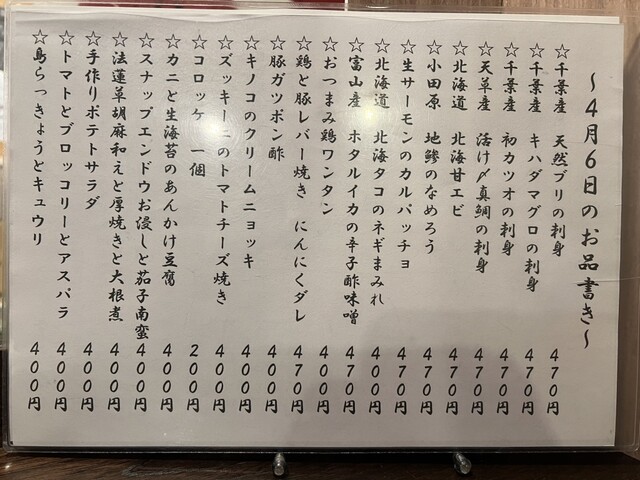 〜4月6日のお品書き〜
☆千葉産 天然ブリの刺身 470円
☆千葉産 キハダマグロの刺身 470円
☆千葉産 初カツオの刺身 470円
☆天草産 活け〆真鯛の刺身 470円
☆北海道 北海甘エビ 470円
☆小田原 地鯵のなめろう 470円
☆生サーモンのカルパッチョ 470円
☆北海道 北海タコのネギまみれ 400円
☆富山産 ホタルイカの辛子酢味噌 470円
☆おつまみ鶏ワンタン 400円
☆鶏と豚レバー焼き にんにくダレ 470円
☆豚ガツポン酢 400円
☆キノコのクリームニョッキ 400円
☆ズッキーニのトマトチーズ焼き 400円
☆コロッケ 一個 200円
☆カニと生海苔のあんかけ豆腐 400円
☆スナップエンドウお浸しと茄子南蛮 400円
☆法蓮草胡麻和えと厚焼きと大根煮 400円
☆手作りポテトサラダ 400円
☆トマトとブロッコリーとアスパラ 400円
☆島らっきょうとキュウリ 400円